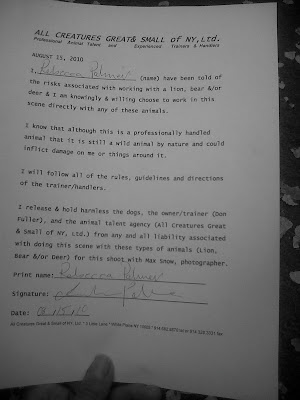 ALL CREATURES GREAT& SMALL of NY, Ltd.
Professional Animal Talent and Experienced Trainers & Handlers
AUGUST 15, 2010
I, Rebecca Palmer (name) have been told of
the risks associated with working with a lion, bear &/or
deer & I am knowingly & willing choose to work in this
scene directly with any of these animals.
I know that although this is a professionally handled
animal that it is still a wild animal by nature and could
inflict damage on me or things around it.
I will follow all of the rules, guidelines and directions
of the trainer/handlers.
I release & hold harmless the dogs, the owner/trainer (Don
Fuller), and the animal talent agency (All Creatures Great
& Small of NY, Ltd.) from any and all liability associated
with doing this scene with these types of animals (Lion,
Bear &/or Deer) for this shoot with Max Snow, photographer.
Print name: Rebecca Palmer
Signature:
Date: 08/15/10
All Creatures Great & Small of NY, LLC